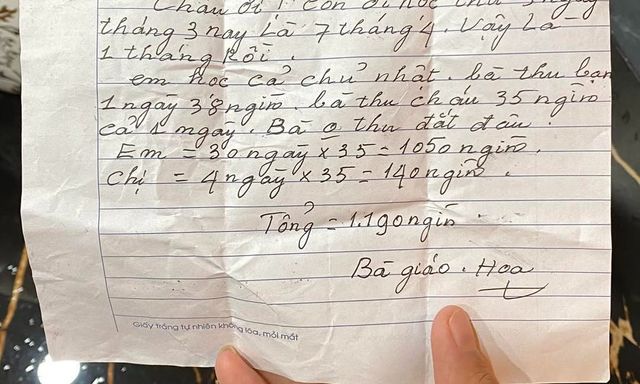 Cháu ơi! con đi học thứ 3 ngày
tháng 3 nay Là 7 tháng 4. Vậy Là
1 tháng Rồi.
em học cả chủ nhật. bà thu bạn
1 ngày 38 ngìn. bà thu cháu 35 ngìn
cả 1 ngày. Bà o thu đắt đâu.
Em = 30 ngày x 35 = 1050 ngìn.
Chị = 4 ngày x 35 = 140 ngìn.
Tổng = 1.190 ngìn
Bà giáo. Hoa
Giấy trắng tự nhiên không lóa, mỏi mắt